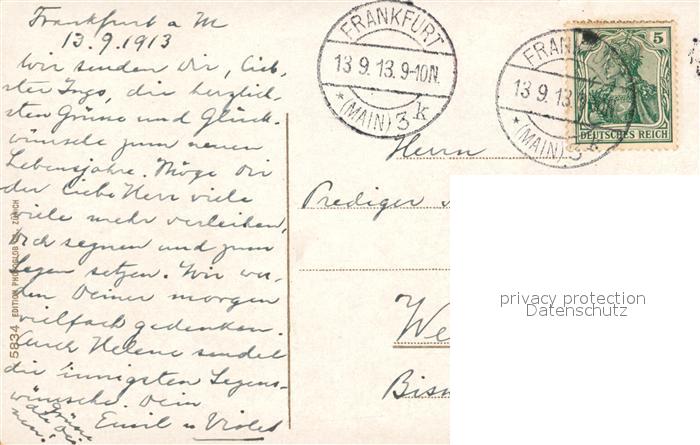 Frankfurt a M
13.9.1913
Wir senden Dir, lieb-
ster Ingo, die herzlich-
sten Grüsse und Glück-
wünsche zum neuen
Lebensjahre. Möge Dir
der liebe Herr viele
viele mehr verleihen,
Dich segnen und zum
Segen setzen. Wir wer-
den Deiner morgen
vielfach gedenken.
Auch Helene sendet
die innigsten Segens-
wünsche. Dein
Emil u Violet
Grüsse
nen!
5834 EDITION PHOTOGLOB ZÜRICH
FRANKFURT
13.9.13.9-10N.
* (MAIN) 3 k
FRAN
13.9.13.9-10N.
* (MAIN) 3 k
5
DEUTSCHES REICH
Herrn
Prediger
We
Bis
privacy protection
Datenschutz